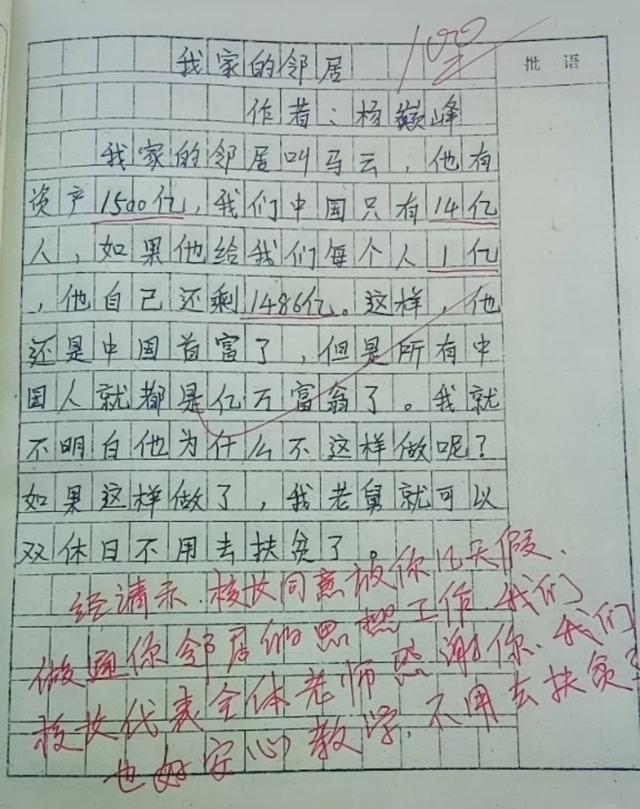 100
批语
我家的邻居
作者：杨巅峰
我家的邻居叫马云，他有
资产1500亿，我们中国只有14亿
人，如果他给我们每个人1亿
，他自己还剩1486亿。这样，他
还是中国首富了，但是所有中
国人就都是亿万富翁了。我就
不明白他为什么不这样做呢？
如果这样做了，我老舅就可以
双休日不用去扶贫了。
经请示.校长同意放你几天假、
做通你邻居的思想工作.我们
校长代表全体老师感谢你.我们
也好安心教学，不用去扶贫了